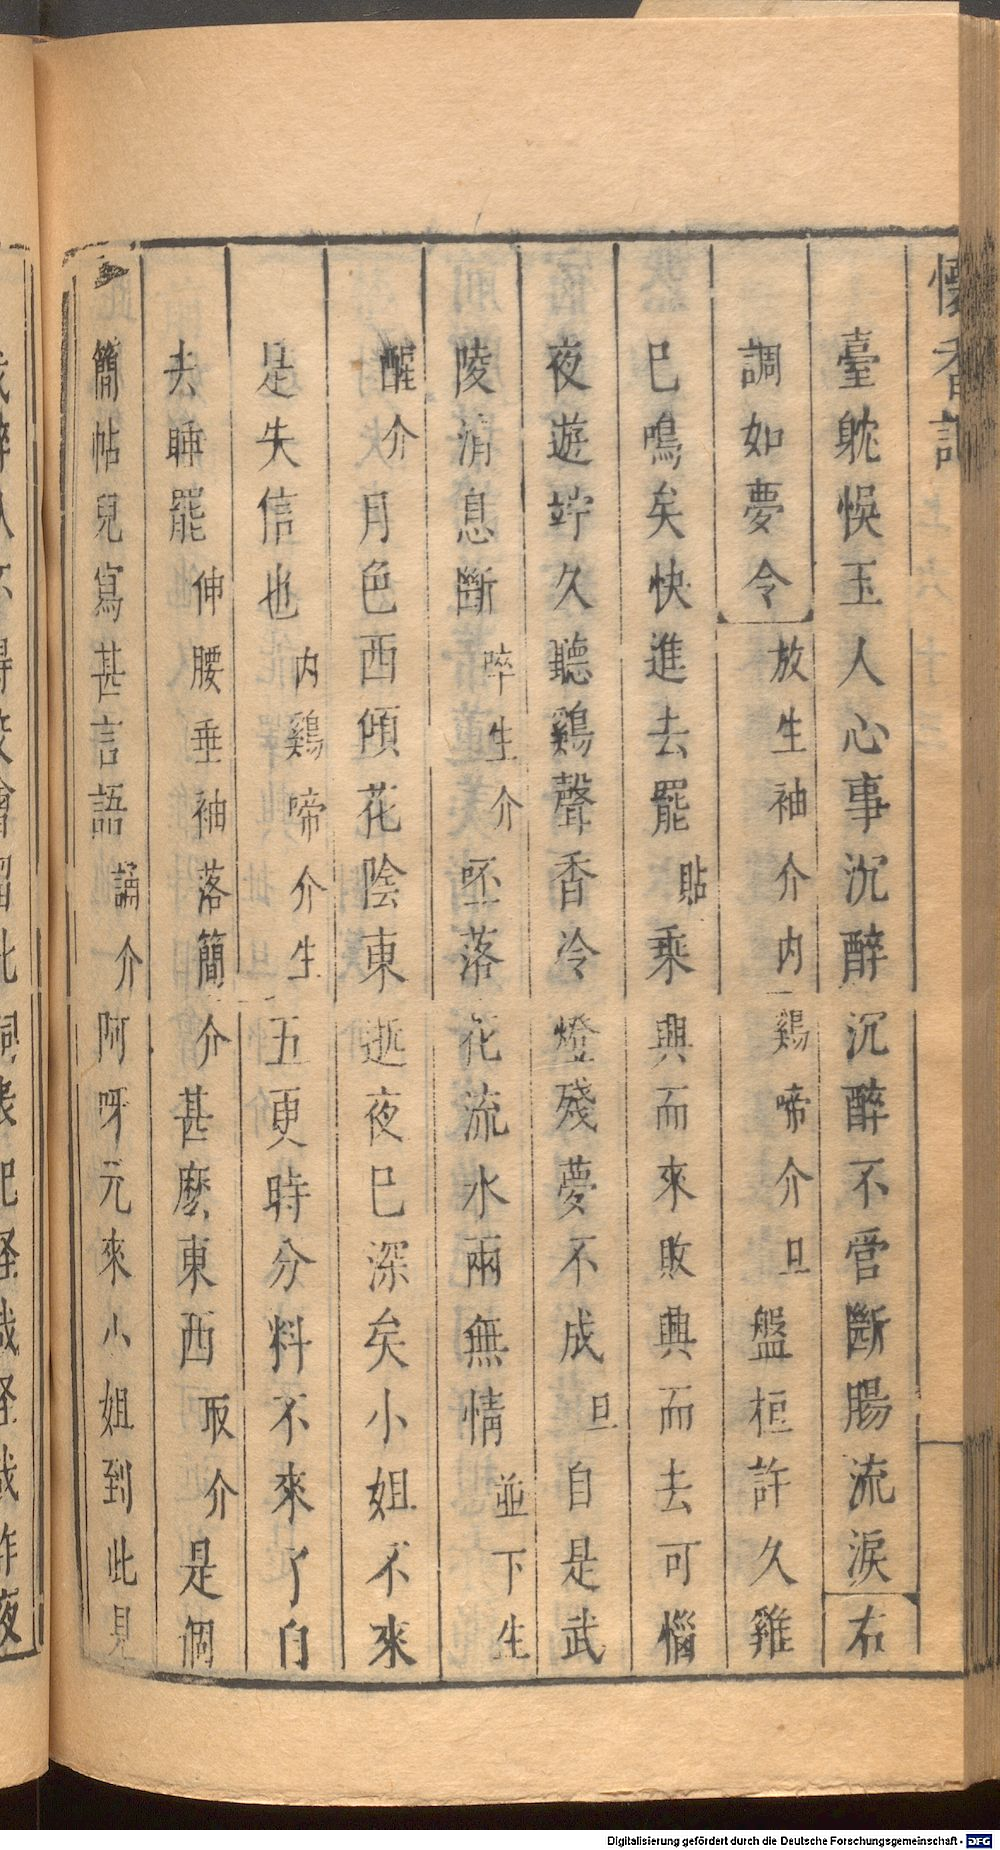 懷香記
臺躭悞玉人心事沉醉沉醉不管斷腸流淚右
調如夢令放生袖介内鷄啼介旦盤桓許久雞
已鳴矣快進去罷貼乘興而來敗興而去可惱
夜遊竚久聽鷄聲香冷燈殘夢不成旦自是武
陵消息斷啐生介呸落花流水兩無情並下生
醒介月色西傾花陰東逝夜已深矣小姐不來
是失信也内鷄啼介生五更時分料不來了自
去睡罷伸腰垂袖落簡介甚麽東西取介是個
簡帖兒寫甚言語誦介阿呀元來小姐到此見
Digitalisierung gefördert durch die Deutsche Forschungsgemeinschaft - DFG